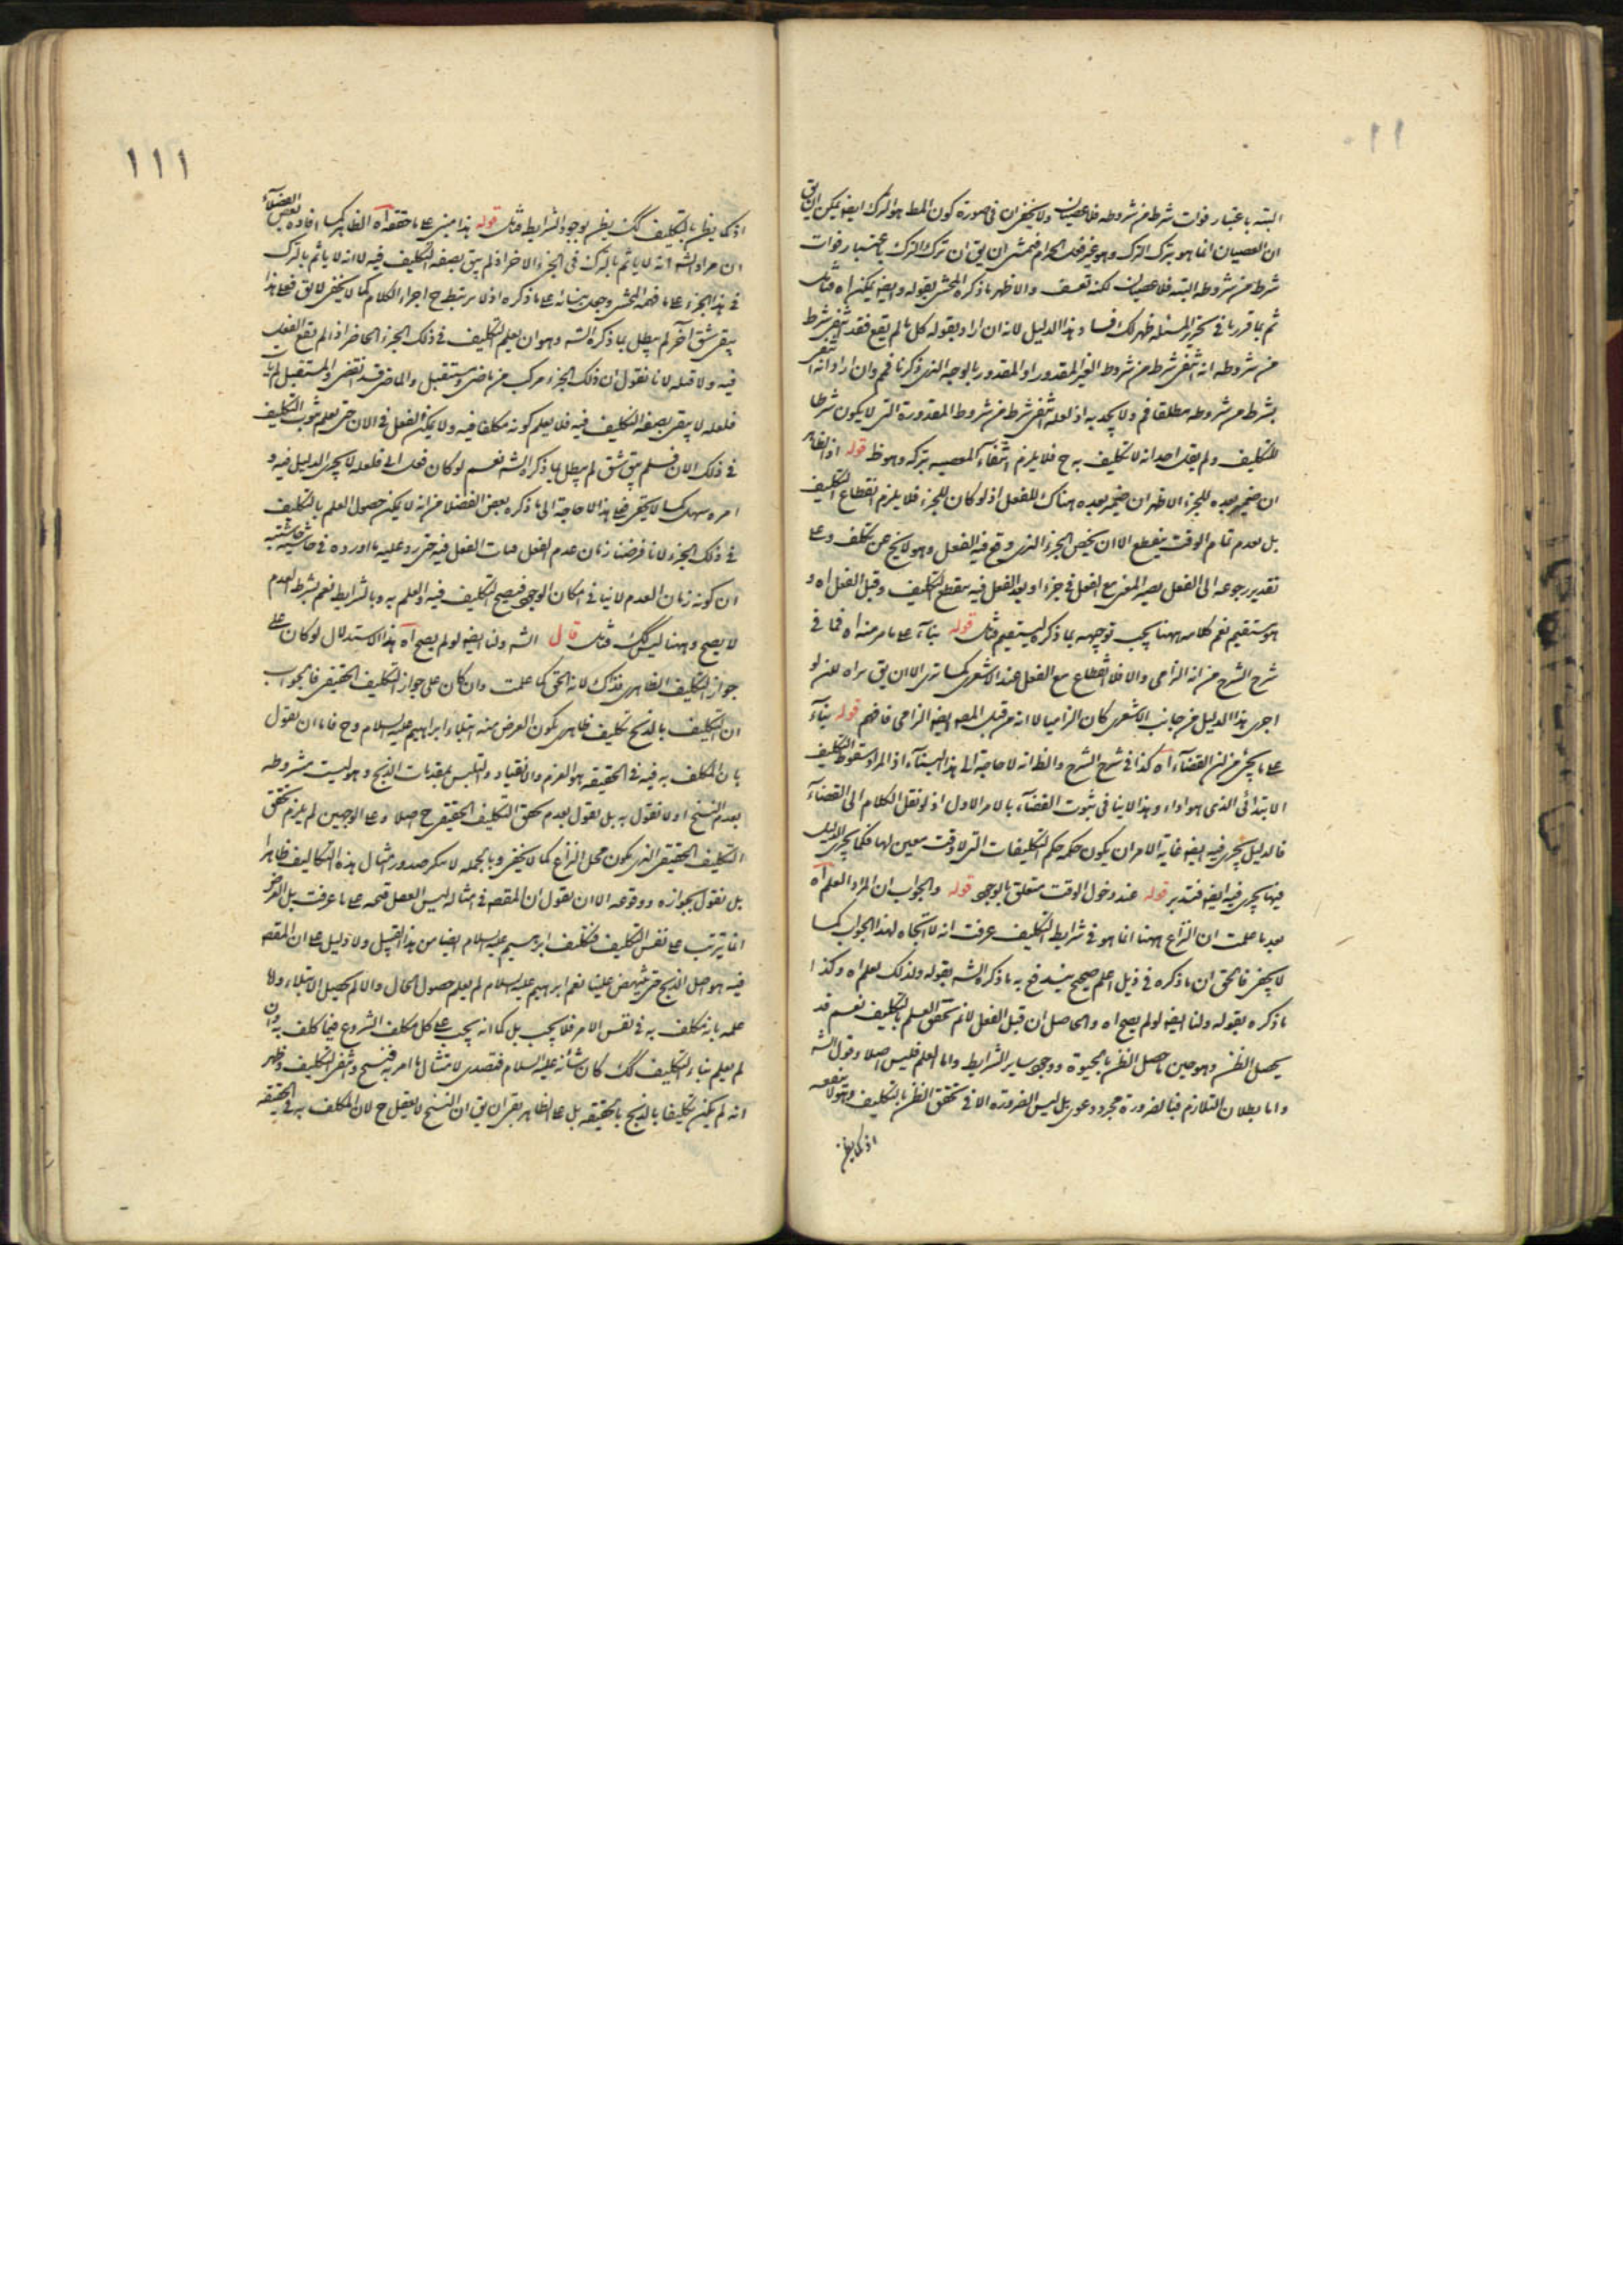 ١١٠
البته باعتبار فوات شرط من شروطه فلا عصيان ولا يخفى ان فى صورة كون المط هو الترك ايضا يمكن ان يق
ان العصيان انما هو بترك الترك وهو غير فعل الحرام فيمشى ان يق ان ترك الترك باعتبار فوات
شرط من شروطه البته فلا عصيان لكنه تعسف والاظهر ما ذكره المحشى بقوله وايضا يمكن اه فتأمل
ثم بما قررنا فى تحرير المسئله ظهر لك فساد هذا الدليل لانه ان اراد بقوله كل ما لم يقع فقد انتفى شرط
من شروطه انه انتفى شرط من شروط الغير المقدور او المقدور بالوجه الذى ذكرنا فمم وان اراد انه انتفى
شرط من شروطه مطلقا فم ولا يجديه اذ لعله انتفى شرط من شروط المقدورة التى لا يكون شرطا
للتكليف ولم يقل احد انه لا تكليف به ح فلا يلزم انتفاء المعصيه بتركه وهو ظ قوله اذ الظاهر
ان ضمير بعده للجزء الاظهر ان ضمير بعده هناك للفعل اذ لو كان للجزء فلا يلزم انقطاع التكليف
بل بعدم تمام الوقت ينقطع الا ان يخص الجزء الذى وقع فيه الفعل وهو لا يخ عن تكلف وعلى
تقدير رجوعه الى الفعل يصير المعنى مع الفعل فى جزء او بعد الفعل فيه ينقطع التكليف وقبل الفعل اه و
هو مستقيم نعم كلامه ههنا يجب توجيهه بما ذكره ليستقيم فتأمل قوله بناء على ما مر منه اه فما فى
شرح الشرح من انه الزامى والا فلا انقطاع مع الفعل عند الاشعرى كما ترى الا ان يق مراه انه لو
اجرى هذا الدليل من جانب الاشعرى كان الزاميا لا انه من قبل المصه ايضا الزامى فافهم قوله بناء
على ما يجئ من ان القضاء اه كذا فى شرح الشرح والظ انه لا حاجة الى هذا البناء اذ المراد سقوط التكليف
الابتدائى الذى هو اداء وهذا لا ينافى ثبوت القضاء بالامر الاول اذ لو نقل الكلام الى القضاء
فالدليل يجرى فيه ايضا غاية الامر ان يكون حكمه حكم التكليفات التى لا وقت معين لها فكما يجرى الدليل
فيها يجرى فيه ايضا فتدبر قوله عند دخول الوقت متعلق بالوجوب قوله والجواب ان المراد العلم اه
بعد ما علمت ان النزاع ههنا انما هو فى شرايط التكليف عرفت انه لا اتجاه لهذا الجواب كما
لا يخفى فالحق ان ما ذكره فى ذيل اعلم صحيح يندفع به ما ذكره الشه بقوله ولذلك يعلم اه وكذا
ما ذكره بقوله ولنا ايضا لو لم يصح اه والحاصل ان قبل الفعل لا نم تحقق العلم بالتكليف نعم قد
يحصل الظن وهو حين ما حصل الظن بالحيوة ووجود ساير الشرايط واما العلم فليس اصلا وقول الشه
واما بطلان التلازم فبالضرورة مجرد دعوى بل ليس الضرورة الا فى تحقق الظن بالتكليف وهو لا ينفعه
اذ كما يظن
١١١
اذ كما يظن بالتكليف كك يظن بوجود الشرايط فتأمل قوله هذا مبنى على ما حققه اه الظاهر كما افاده بعض الفضلاء
ان مراد الشه انه لا ياثم بالترك فى الجزء الاخر اذ لم يبق بصفة التكليف فيه لا انه لا ياثم بالترك
فى هذا الجزء على ما فهمه المحشى وجعل بنائه على ما ذكره اذ لا يرتبط ح اجزاء الكلام كما لا يخفى لا يق فعلى هذا
يبقى شق آخر لم يبطل بما ذكره الشه وهو ان يعلم التكليف فى ذلك الجزء الحاضر اذا لم يقع الفعل
فيه ولا قبله لانا نقول ان ذلك الجزء مركب من ماض ومستقبل والماضى قد انقضى والمستقبل لم يأت
فلعله لا يبقى بصفة التكليف فيه فلا يعلم كونه مكلفا فيه ولا يمكن الفعل فى الان حتى يعلم ثبوت التكليف
فى ذلك الان فلم يبق شق لم يبطل بما ذكره الشه نعم لو كان فعل انى فلعله لا يجرى الدليل فيه و
امره سهل كما لا يخفى فعلى هذا لا حاجة الى ما ذكره بعض الفضلا من انه لا يمكن حصول العلم بالتكليف
فى ذلك الجزء لانا فرضنا زمان عدم الفعل فمات الفعل فيه حتى رد عليه ما اورده فى حاشية حاشيته
ان كونه زمان العدم لا ينافى امكان الوجود فيصح التكليف فيه والعلم به وبالشرايط نعم بشرط العدم
لا يصح وههنا ليس كك فتأمل قال الشه ولنا ايضا لو لم يصح اه هذا الاستدلال لو كان على
جواز التكليف الظاهرى فذلك لانه الحق كما علمت وان كان على جواز التكليف الحقيقى فالجواب
ان التكليف بالذبح تكليف ظاهرى يكون الغرض منه ابتلاء ابراهيم عليه السلام وح فاما ان نقول
بان المكلف به فيه فى الحقيقه هو العزم والانقياد والتلبس بمقدمات الذبح وهو ليست مشروطه
بعدم النسخ او لا نقول به بل نقول بعدم تحقق التكليف الحقيقى ح اصلا وعلى الوجهين لم يلزم تحقق
التكليف الحقيقى الذى يكون محل النزاع كما لا يخفى وبالجمله لا ننكر صدور امثال هذه التكاليف ظاهرا
بل نقول بجوازه ووقوعه الا ان نقول ان المقصه فى امثاله ليس الفعل قيمه على ما عرفت بل الغرض
انما يترتب على نفس التكليف فتكليف ابرهيم عليه السلام ايضا من هذا القبيل ولا دليل على ان المقصه
فيه هو اصل الذبح حتى ينهض علينا نعم ابراهيم عليه السلام لم يعلم حصول الحال والا لم يحصل الابتلاء واما
علمه بانه مكلف به فى نفس الامر فلا يجب بل كما انه يجب على كل مكلف الشروع فيما كلف به وان
لم يعلم بقاء التكليف كك كان شأنه عليه السلام فتصدى لامتثال ما امر به فنسخ وانتفى التكليف وظهر
انه لم يكن تكليفا بالذبح بالحقيقه بل على الظاهر بقى ان يق ان النسخ لا يعقل ح لان المكلف به فى الحقيقه